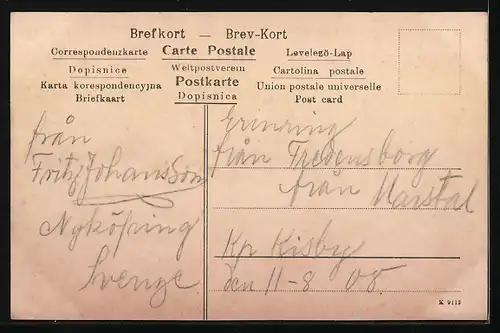 Brefkort — Brev-Kort
Correspondenzkarte Carte Postale Levelező-Lap
Weltpostverein
Dopisnice Postkarte Cartolina postale
Karta korespondencyjna Union postale universelle
Briefkaart Dopisnica Post card
från
Fritz Johansson
Nyköping
Sverige
Erinring
från Fredensborg
från Marstal
Kp Kisby
den 11-8 08.
K 9115